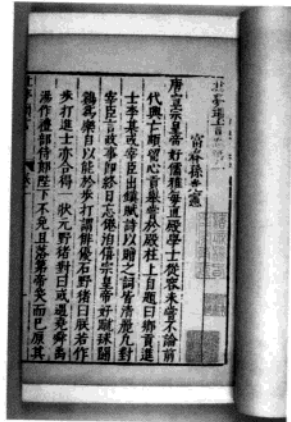 北夢瑣言卷第一
富春孫光憲
唐宣宗皇帝好儒雅每直殿學士從容未嘗不論前
代興亡頗留心貢舉嘗於殿柱上自題曰鄉貢進
士李某或宰臣出鎮賦詩以贈之詞皆清麗凡對
宰臣言政事即終日忘倦洎僖宗皇帝好蹴球鬬
鷄為樂自以能於步打謂俳優石野猪曰朕若作
步打進士亦合得一狀元野猪對曰或遇堯舜禹
湯作禮部侍郎陛下不免且落第帝笑而已原其